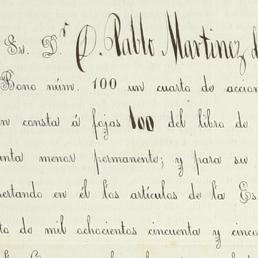 Sr. D.ⁿ D. Pablo Martinez d
Bono núm. 100 un cuarto de accion
n consta á fojas 100 del libro de
nta menor permanente; y para su
ertando en él los artículos de la Es
to de mil ochocientos cincuenta y cinco